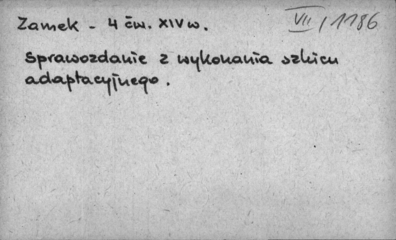 Zamek - 4 ćw. XIV w. VII/1186
Sprawozdanie z wykonania szkicu
adaptacyjnego.